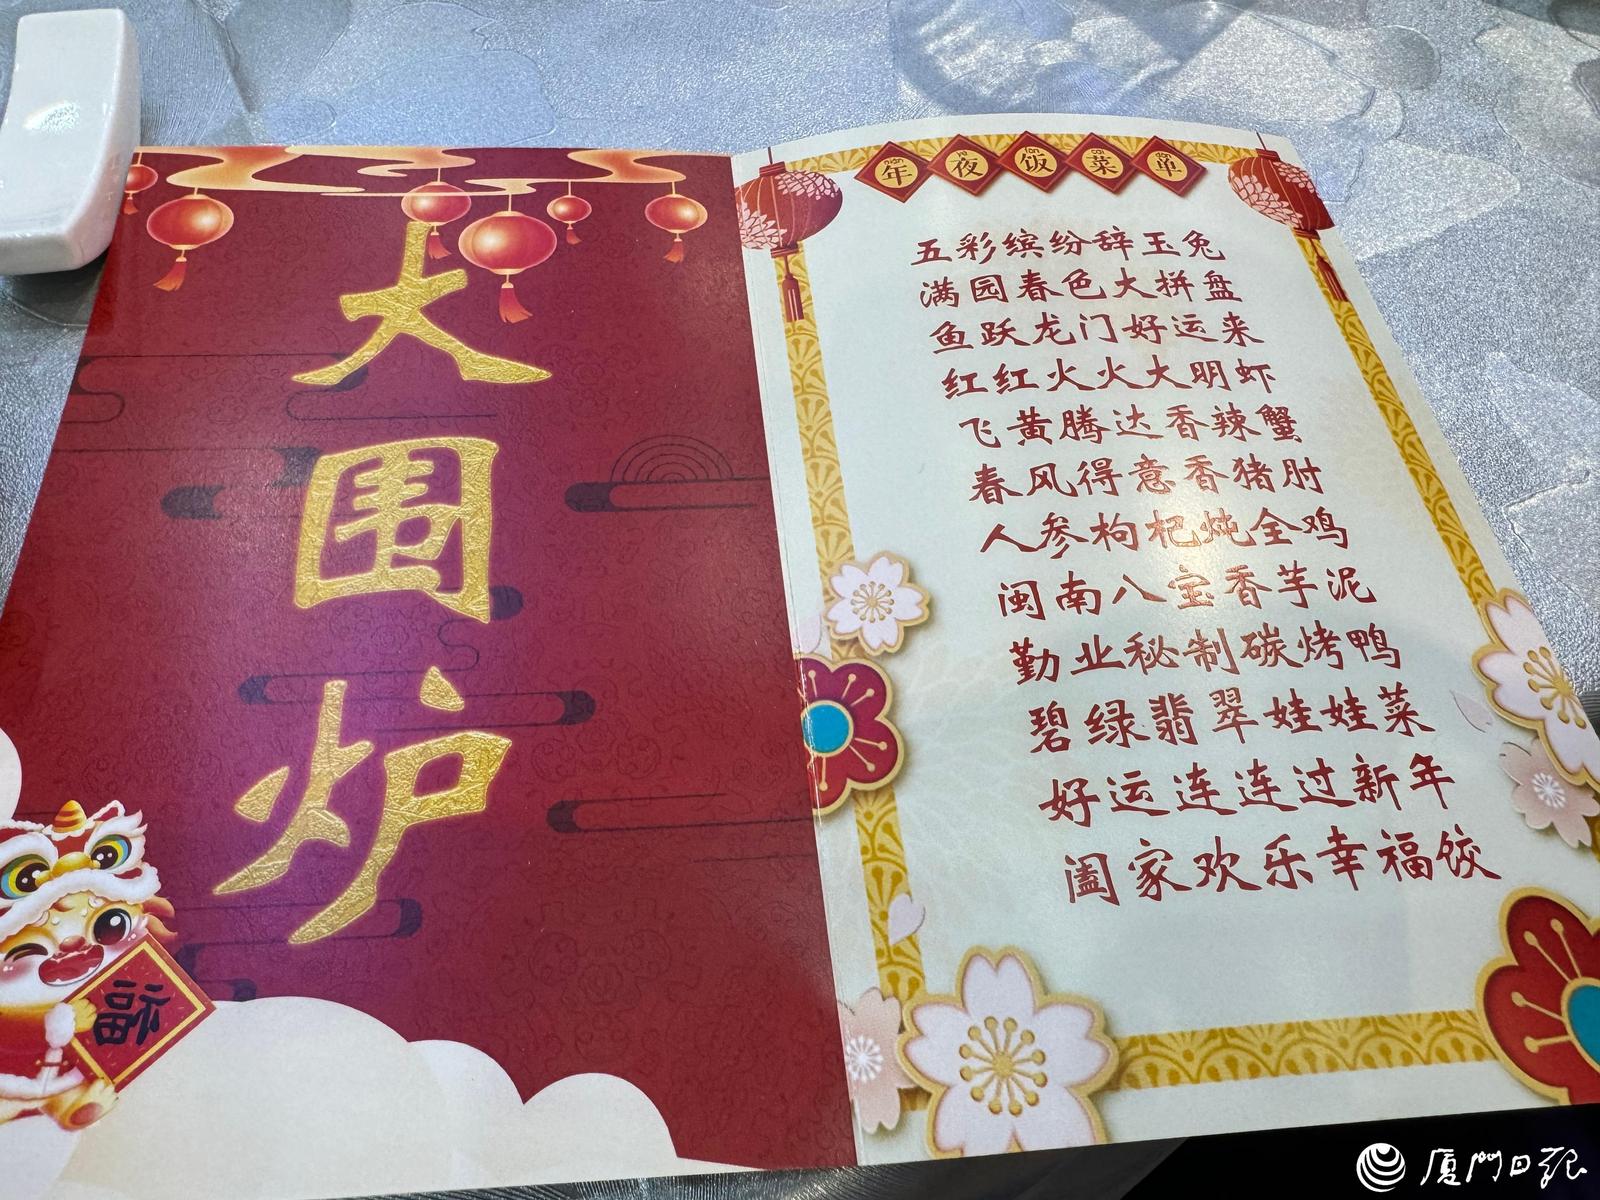 大围炉
福
年夜饭菜单
nián yè fàn cài dān
五彩缤纷辞玉兔
满园春色大拼盘
鱼跃龙门好运来
红红火火大明虾
飞黄腾达香辣蟹
春风得意香猪肘
人参枸杞炖全鸡
闽南八宝香芋泥
勤业秘制碳烤鸭
碧绿翡翠娃娃菜
好运连连过新年
阖家欢乐幸福饺
厦门日报